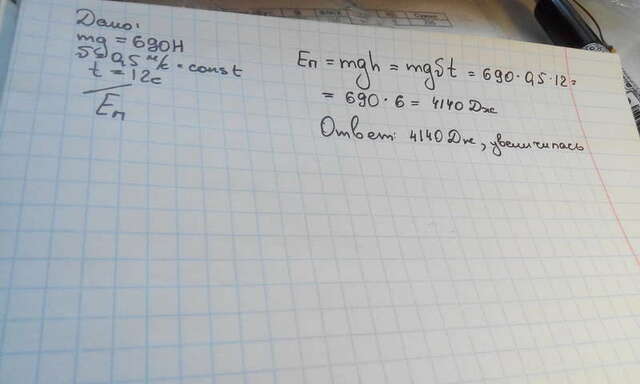 Дано:
mg = 690Н
v = 0,5 м/с = const
t = 12c
Eп
Eп = mgh = mgvt = 690·0,5·12=
= 690·6 = 4140 Дж
Ответ: 4140 Дж, увеличилась